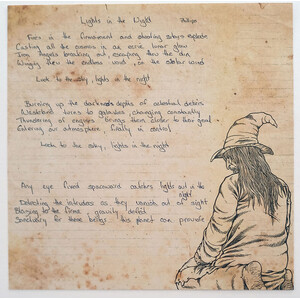 Lights in the Night Phillips
Fires in the firmament and shooting stars explode
Casting all the cosmos in an eerie lunar glow
Iron Angels breaking out escaping thru the sun
Winging thru the endless void, on the stellar wind
Look to the sky, lights in the night
Burning up the darkness depths of celestial debris
Wasteland turns to galaxies, changing constantly
Thundering of engines brings them closer to their goal
Entering our atmosphere, finally in control
Look to the sky, lights in the night
Any eye fixed spaceward catches lights out in the
night
Detecting the intruders as they vanish out of sight
Blazing to the fire, gravity defied
Sanctuary for these beings this planet can provide